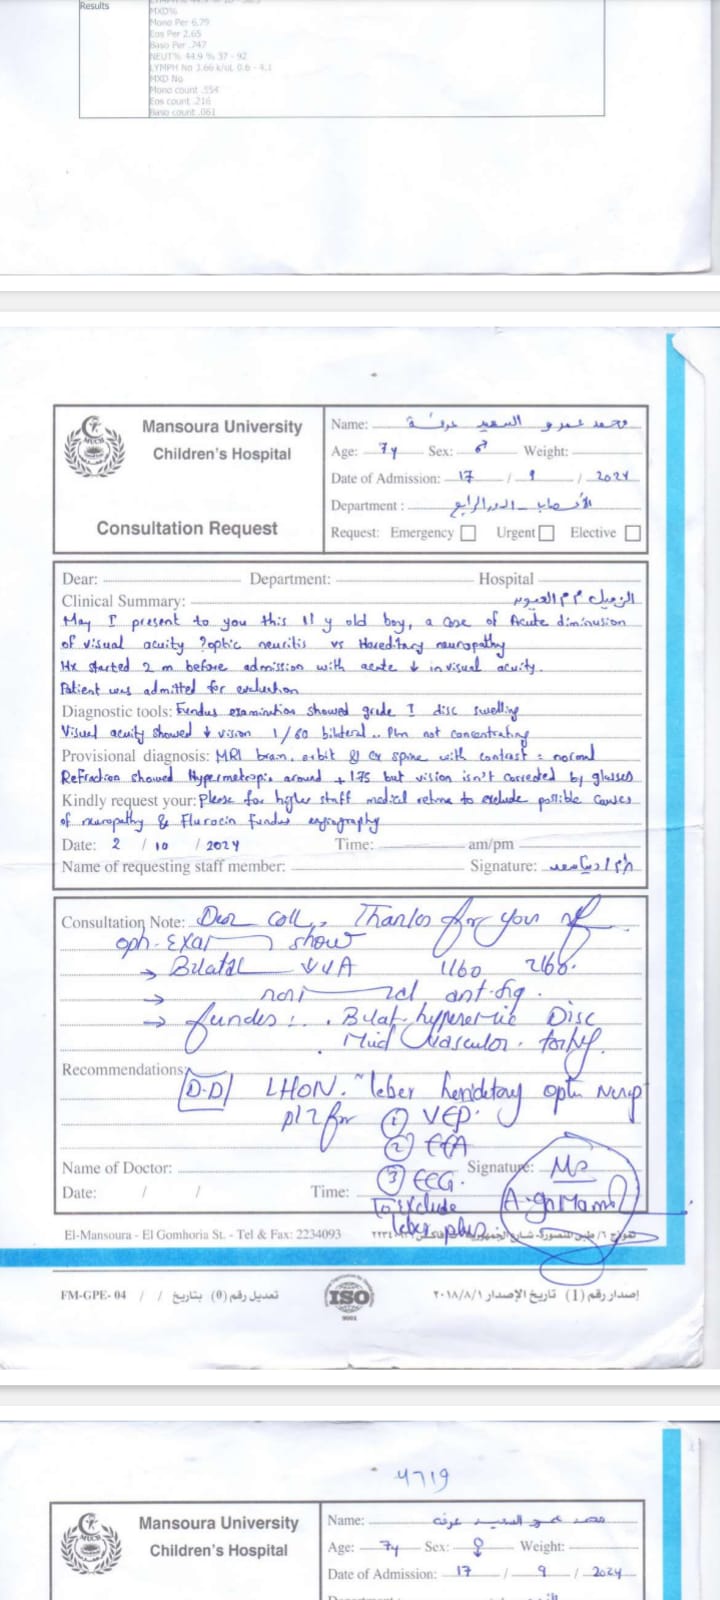 Results
MXD%
Mono Per 6.79
Eos Per 2.65
Baso Per .747
NEUT% 44.9 % 37 - 92
LYMPH No 3.66 k/uL 0.6 - 4.1
MXD No
Mono count .554
Eos count .216
Baso count .061
Mansoura University
Children's Hospital
Consultation Request
Name: محمد عمرو السعيد عرفة
Age: 7y Sex: ♂ Weight:
Date of Admission: 17 / 9 / 2024
Department : الأعصاب - الدور الرابع
Request: Emergency Urgent Elective
Dear: Department: Hospital
Clinical Summary: الزميل م م العيون
May I present to you this 11 y old boy, a case of Acute diminusion
of visual acuity ? optic neuritis vs Hereditary neuropathy
Hx started 2 m before admission with acute ↓ in visual acuity.
Patient was admitted for evaluation
Diagnostic tools: Fundus examination showed grade I disc swelling
Visual acuity showed ↓ vision 1/60 bilateral .. not concentrating
Provisional diagnosis: MRI brain, orbit & spine with contrast = normal
Refraction showed Hypermetropia around + 1.75 but vision isn't corrected by glasses
Kindly request your: Please for higher staff medical retina to exclude possible causes
of neuropathy & Flurocin fundus angiography
Date: 2 / 10 / 2024 Time: am/pm
Name of requesting staff member: Signature:
Consultation Note: Dear coll, Thanks for your ref
oph. Exam show
→ Bilateral ↓ VA 1/60 2/60.
→ normal ant. sig.
→ fundus : . Bilat. hyperemic Disc
. Mild Vascular
Recommendations:
D.D/ LHON. ~ leber heriditory optic
plz for ① VEP.
② FFA
③ ECG.
To exclude
leber plus
Name of Doctor: Signature:
Date: / / Time:
El-Mansoura - El Gomhoria St. - Tel & Fax: 2234093
FM-GPE- 04 / / تعديل رقم (0) بتاريخ
ISO
9001
إصدار رقم (1) تاريخ الإصدار ٢٠١٨/٨/١
4719
Mansoura University
Children's Hospital
Name: محمد عمرو السعيد عرفة
Age: 7y Sex: Weight:
Date of Admission: 17 / 9 / 2024